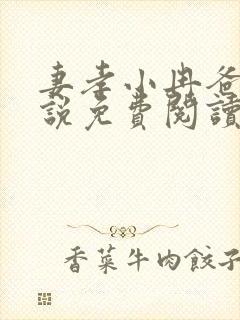 妻孝小冉爸
說免費閱讀
香菜牛肉餃子